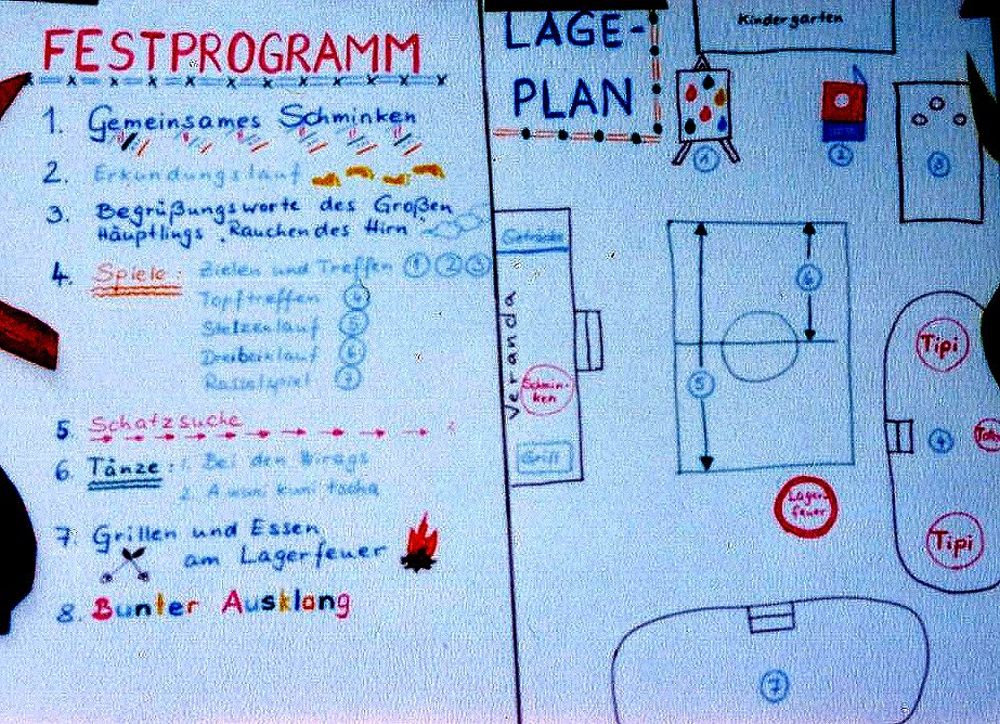 FESTPROGRAMM
1. Gemeinsames Schminken
2. Erkundungslauf
3. Begrüßungsworte des Großen
Häuptlings „Rauchendes Hirn"
4. Spiele: Zielen und Treffen ① ② ③
Topftreffen ④
Stelzenlauf ⑤
Dreibeinlauf ⑥
Rasselspiel ⑦
5. Schatzsuche
6. Tänze: 1. Bei den
2. Awuni kuni
7. Grillen und Essen
am Lagerfeuer
8. Bunter Ausklang
LAGE-
PLAN
Kindergarten
①
②
③
Getränke
Veranda
Schmin-
ken
Grill
⑤
⑥
Tipi
④
Tipi
Lager-
feuer
⑦